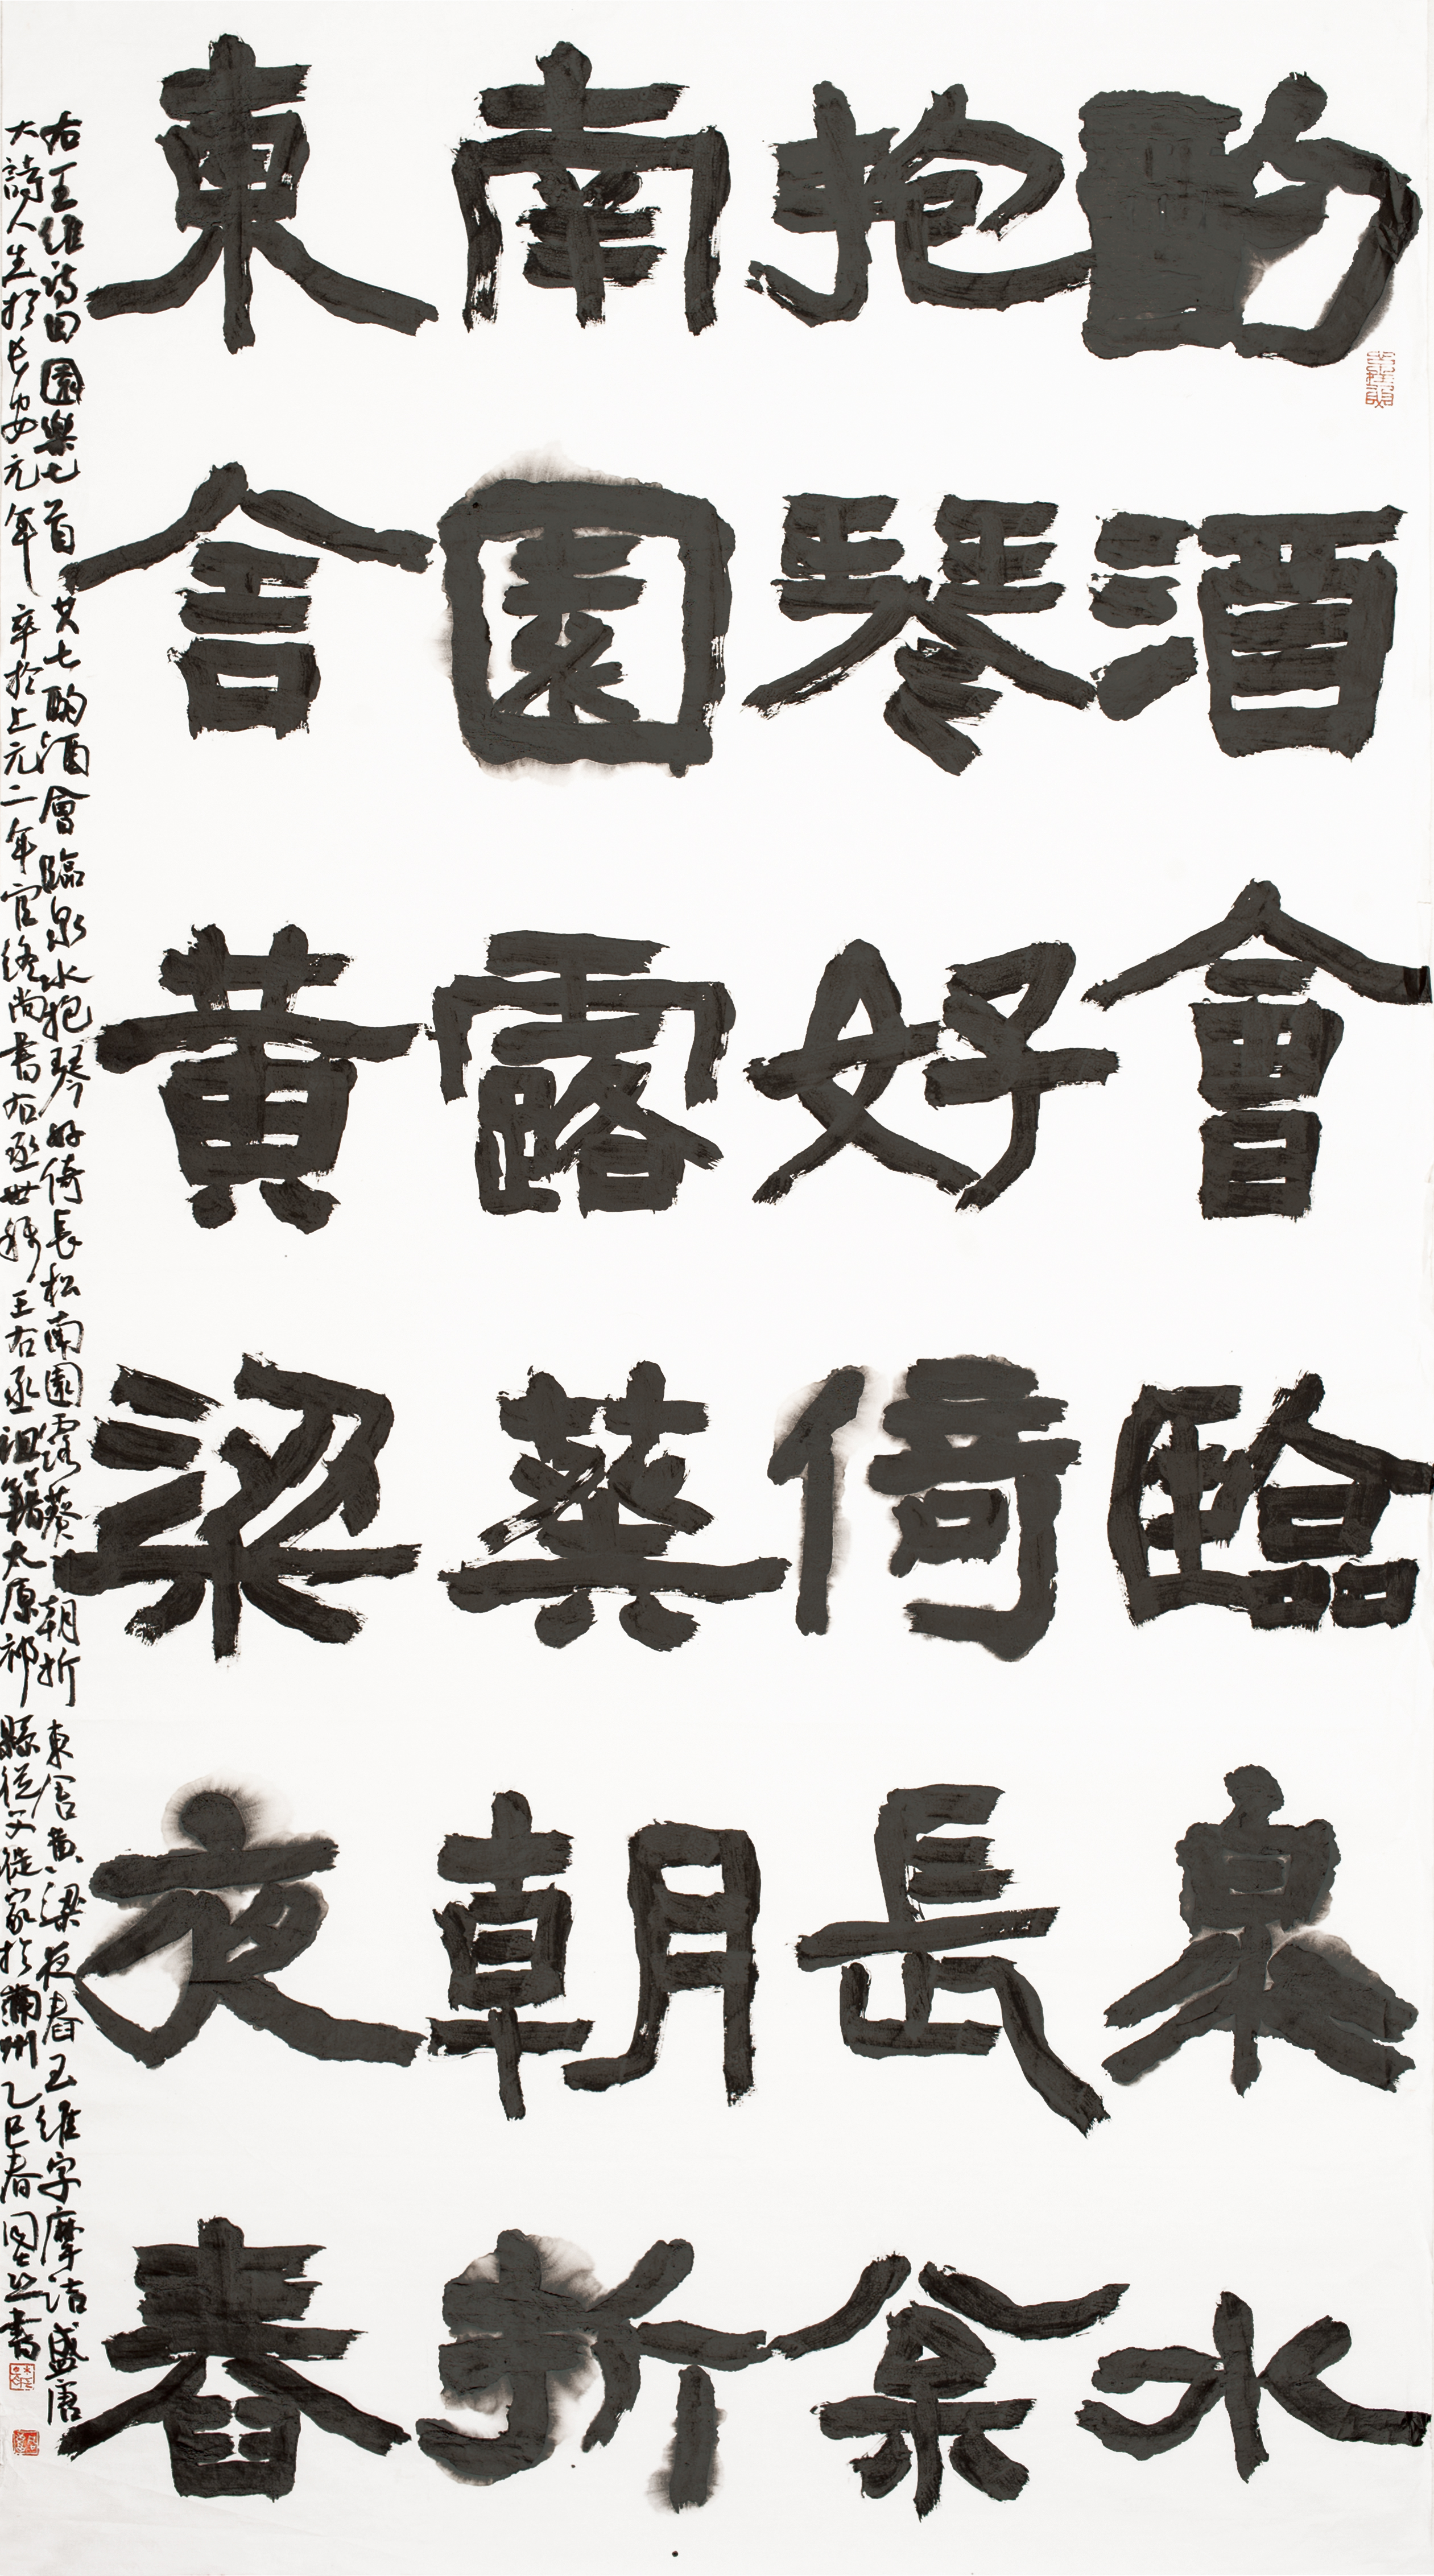 酌酒會臨泉水
抱琴好倚長松
南園露葵朝折
東舍黃粱夜舂
右王維詩田園樂七首其七酌酒會臨泉水抱琴好倚長松南園露葵朝折東舍黃粱夜舂王維字摩詰盛唐
大詩人生於長安元年卒於上元二年官終尚書右丞世稱王右丞祖籍太原祁縣從父徙家於蒲州乙巳春 書